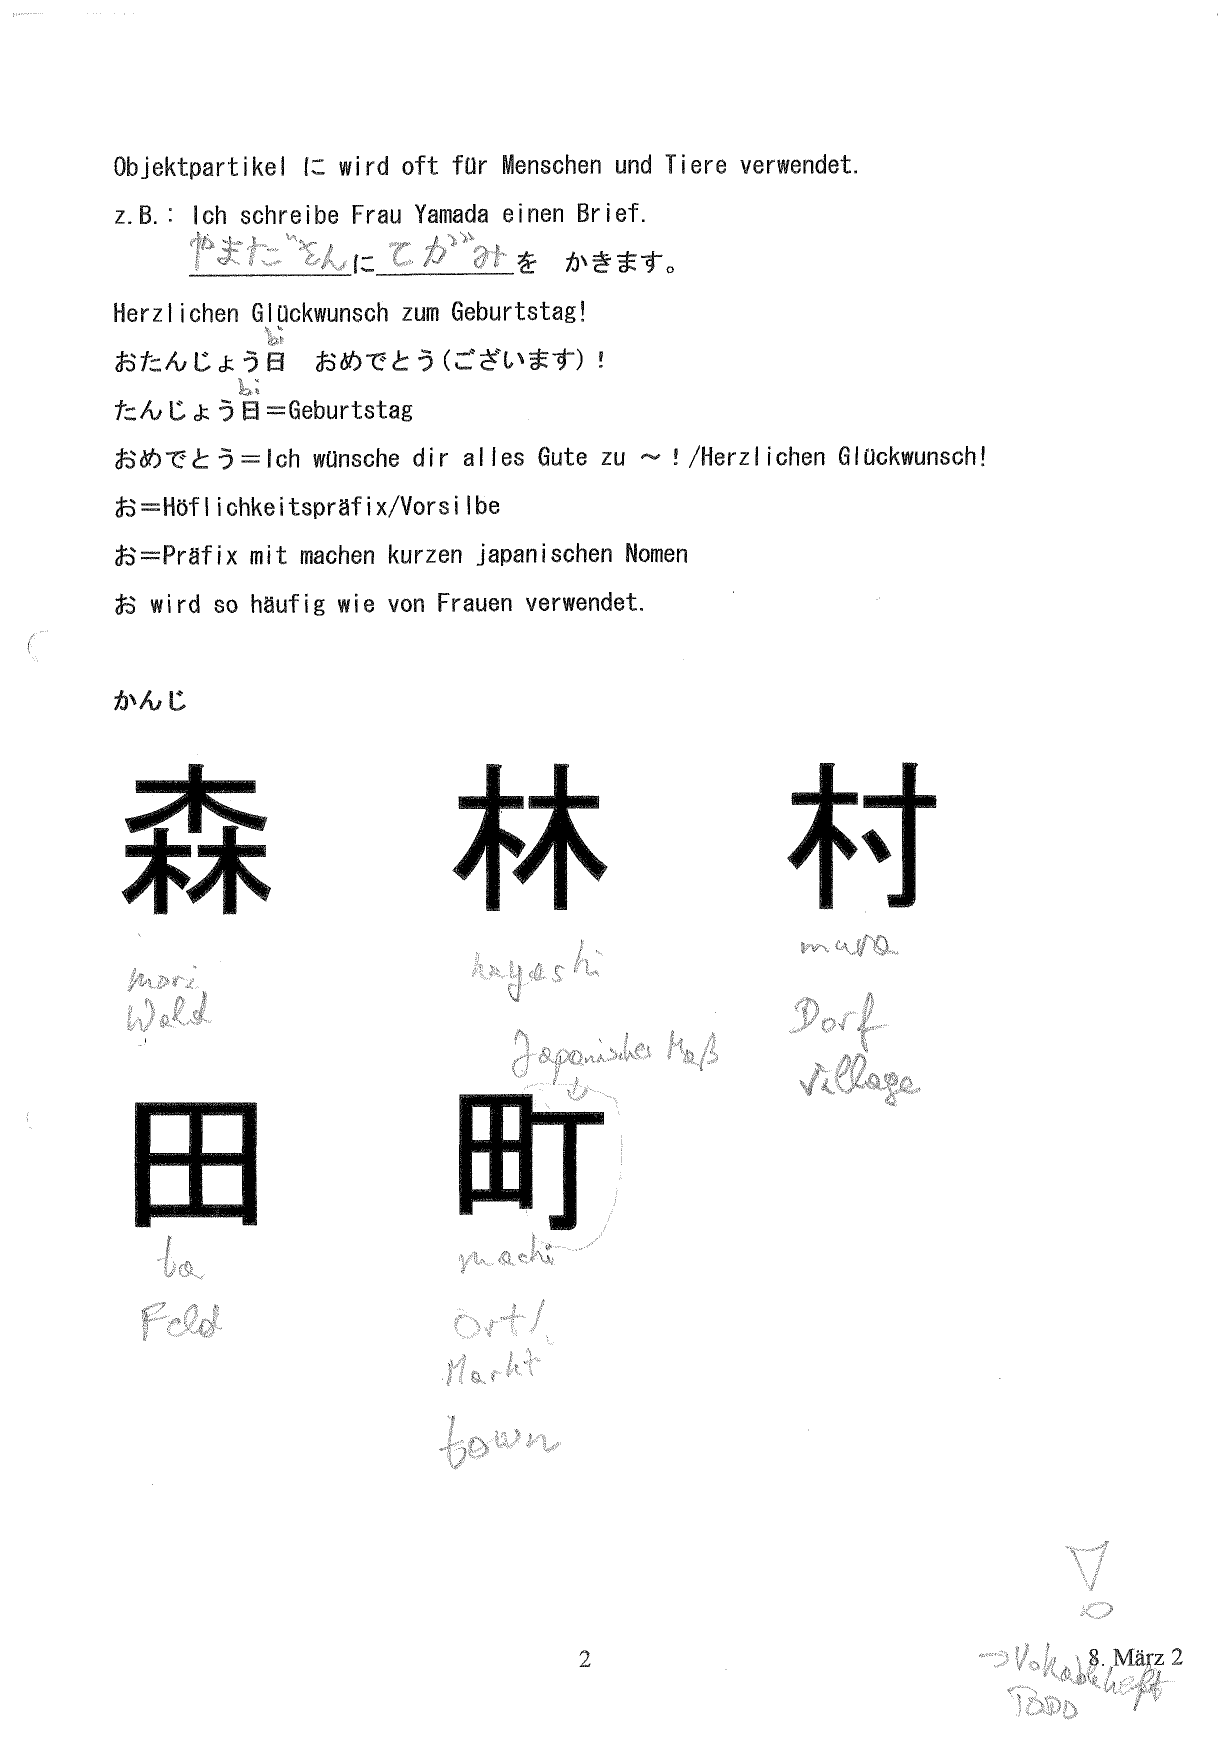 Objektpartikel に wird oft für Menschen und Tiere verwendet.
z.B.: Ich schreibe Frau Yamada einen Brief.
やまださんに てがみを かきます。
Herzlichen Glückwunsch zum Geburtstag!
び
おたんじょう日 おめでとう(ございます)!
び
たんじょう日=Geburtstag
おめでとう=Ich wünsche dir alles Gute zu ~!/Herzlichen Glückwunsch!
お=Höflichkeitspräfix/Vorsilbe
お=Präfix mit machen kurzen japanischen Nomen
お wird so häufig wie von Frauen verwendet.
かんじ
森 林 村
mori hayashi mura
Wald Dorf
Japanisches Maß village
田 町
ta machi
Feld Ort/
Markt
town
2 8. März 2
→Vokabelheft
TODO